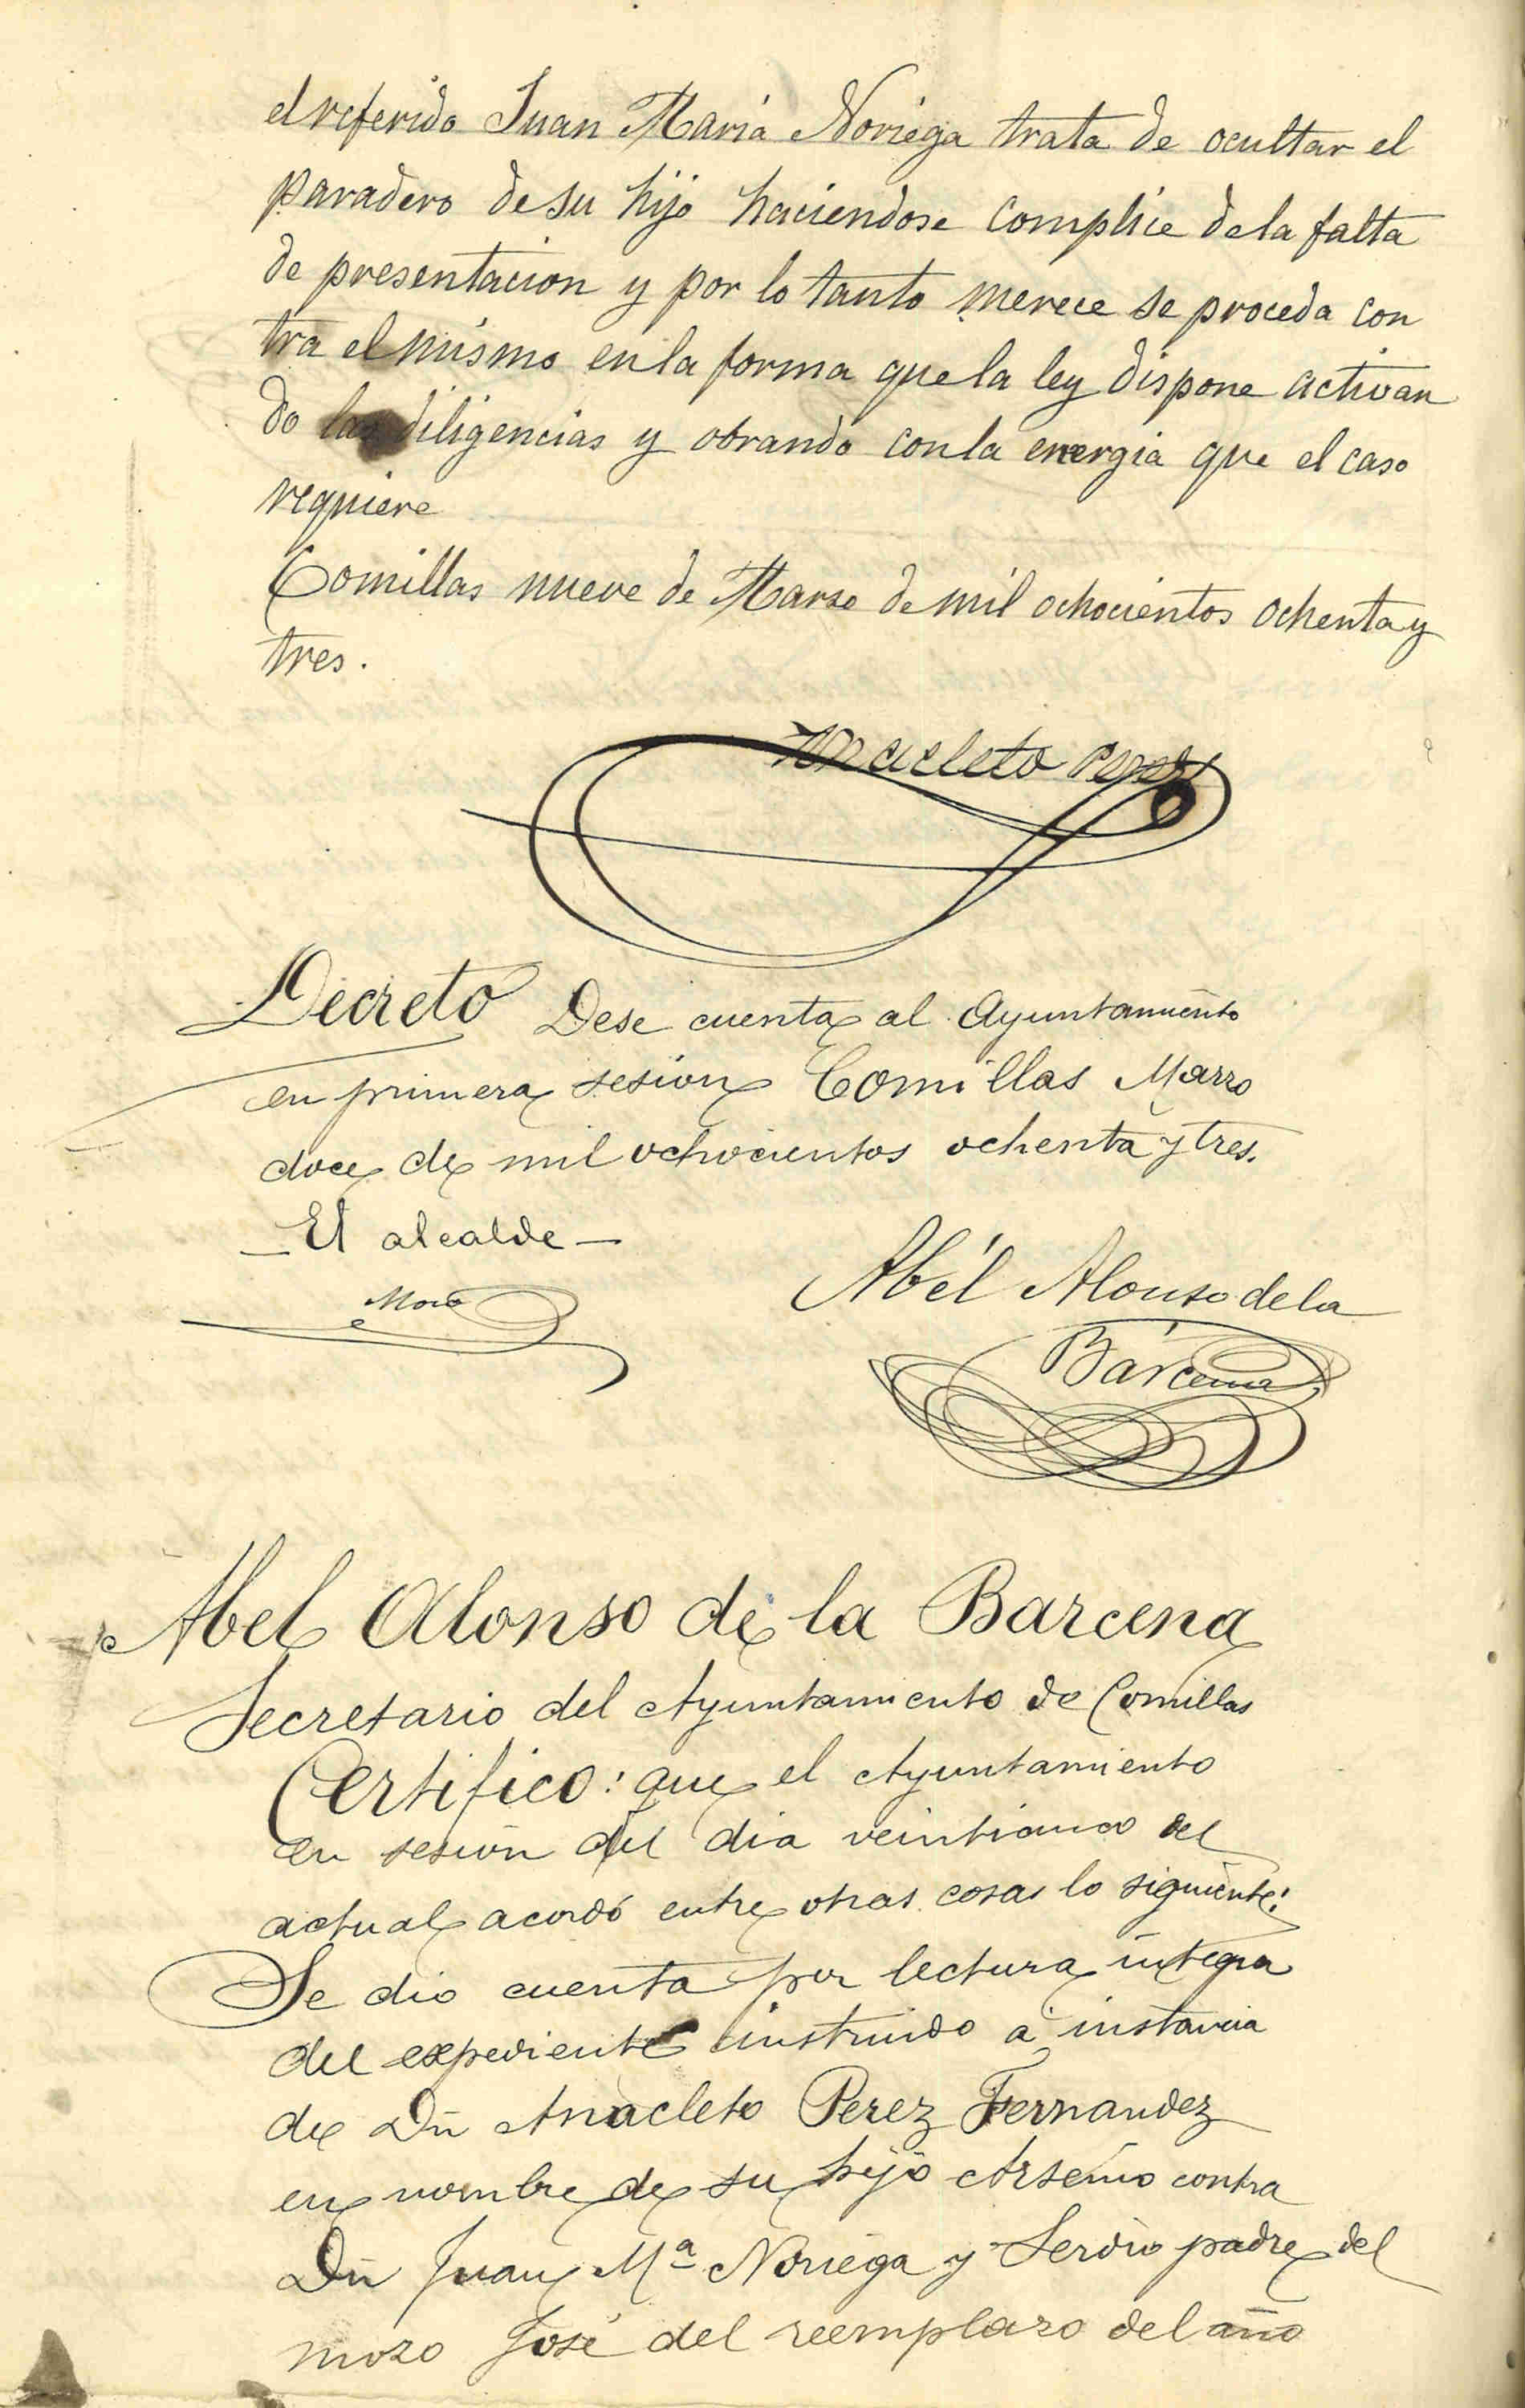 el referido Juan Maria Noriega trata de ocultar el
paradero de su hijo haciendose complice de la falta
de presentacion y por lo tanto merece se proceda con
tra el mismo en la forma que la ley dispone activan
do las diligencias y obrando con la energia que el caso
requiere
Comillas nueve de Marzo de mil ochocientos ochenta y
tres.
Anacleto Perez
Decreto Dese cuenta al Ayuntamiento
en primera sesion Comillas Marzo
doce de mil ochocientos ochenta y tres.
— El alcalde —
Abél Alonso de la
Bárcena
Abel Alonso de la Barcena
Secretario del Ayuntamiento de Comillas
Certifico: que el Ayuntamiento
en sesion del dia veinticinco del
actual acordó entre otras cosas lo siguiente:
Se dio cuenta por lectura integra
del expediente instruido a instancia
de Dn Anacleto Perez Fernandez
en nombre de su hijo Arsenio contra
Dn Juan Mª Noriega y Serdio padre del
mozo José del reemplazo del año